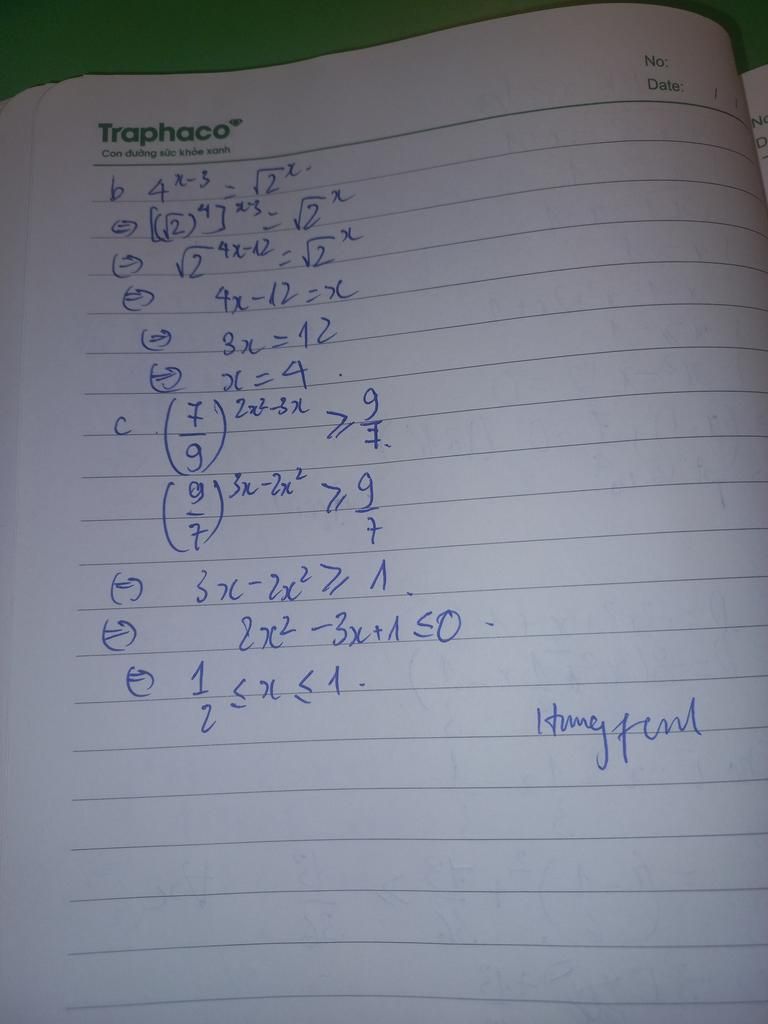 No:
Date: / /
Traphaco
Con đường sức khỏe xanh
b 4^{x-3} = √2^x.
⇔ [(√2)^4]^{x-3} = √2^x
⇔ √2^{4x-12} = √2^x
⇔ 4x-12=x
⇔ 3x=12
⇔ x=4.
c (7/9)^{2x²-3x} ⩾ 9/7.
(9/7)^{3x-2x²} ⩾ 9/7
⇔ 3x-2x² ⩾ 1.
⇔ 2x²-3x+1 ≤0.
⇔ 1/2 ≤ x ≤ 1.